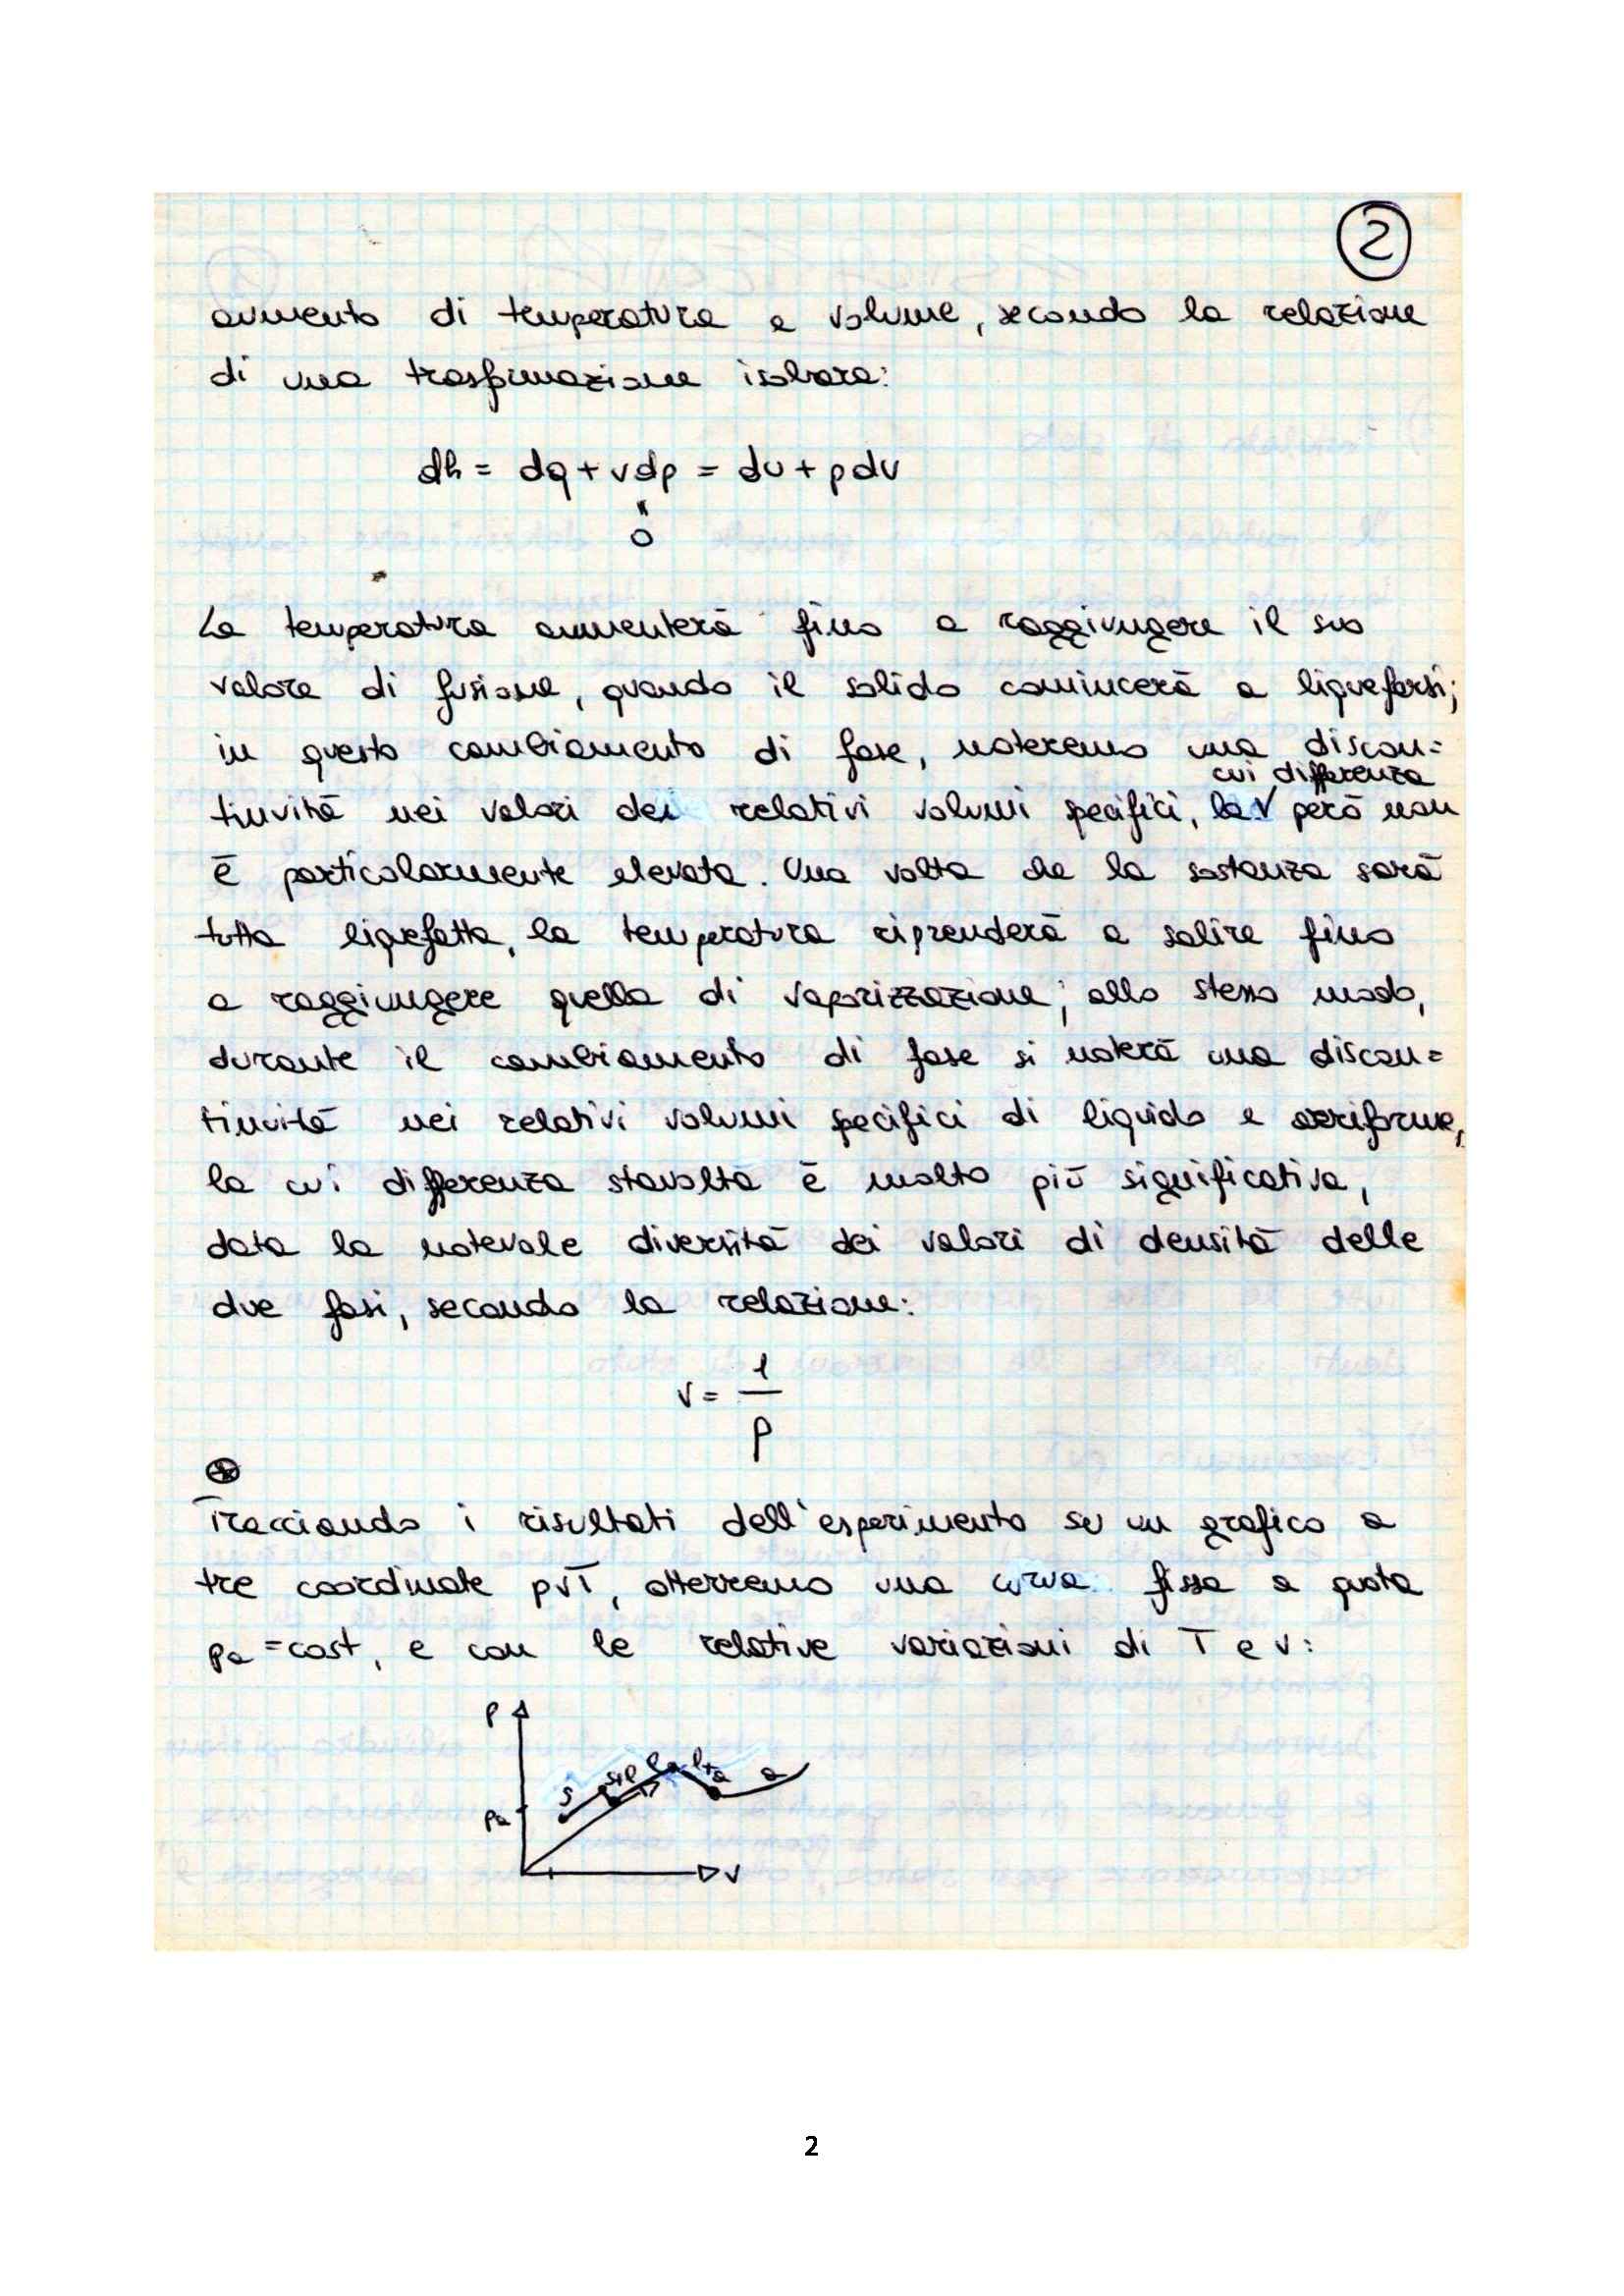 2
aumento di temperatura e volume, secondo la relazione
di una trasformazione isobara:
dh = dq + vdp = du + pdv
"
0
La temperatura aumenterà fino a raggiungere il suo
valore di fusione, quando il solido comincerà a liquefarsi;
in questo cambiamento di fase, noteremo una discon=
cui differenza
tinuità nei valori dei relativi volumi specifici, la √ però non
è particolarmente elevata. Una volta che la sostanza sarà
tutta liquefatta, la temperatura riprenderà a salire fino
a raggiungere quella di vaporizzazione; allo stesso modo,
durante il cambiamento di fase si noterà una discon=
tinuità nei relativi volumi specifici di liquido e aeriforme,
la cui differenza stavolta è molto più significativa,
data la notevole diversità dei valori di densità delle
due fasi, secondo la relazione:
v = 1
ρ
Tracciando i risultati dell'esperimento su un grafico a
tre coordinate pvT, otterremo una curva fissa a quota
pa = cost, e con le relative variazioni di T e v:
p
s s+l l l+a a
pa
v
2